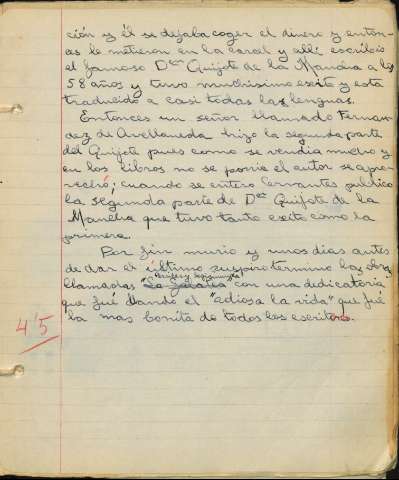 ción y él se dejaba coger el dinero y enton-
ces lo metieron en la carcel y allí escribió
el famoso Dⁿ Quijote de la Mancha a los
58 años y tuvo muchisimo exito y está
traducido a casi todas las lenguas.
Entonces un señor llamado Fernan-
dez de Avellaneda hizo la segunda parte
del Quijote pues como se vendia mucho y
en los libros no se ponia el autor se apro-
vechó; cuando se entero Cervantes publico
la segunda parte de Dⁿ Quijote de la
Mancha que tuvo tanto exito como la
primera.
Por fin murio y unos dias antes
de dar el último suspiro termino las obras
llamadas "la Galatea" con una dedicatoria
que fué dando el "adios a la vida" que fué
la mas bonita de todos los escritores.
4'5